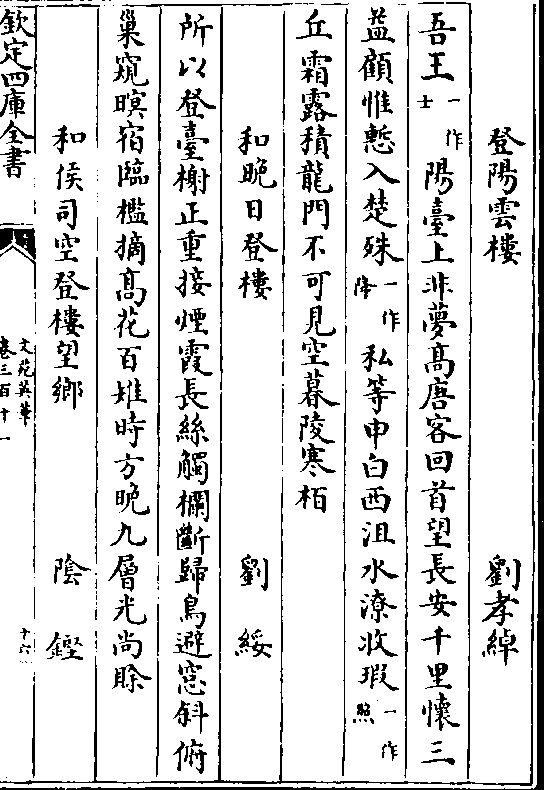 登陽雲樓 劉孝綽
吾王一作士陽臺上非夢高唐客回首望長安千里懷三
益顧惟慙入楚殊一作降私等申白西沮水潦收瑕一作照
丘霜露積龍門不可見空暮陵寒栢
和晚日登樓 劉綏
所以登臺榭正重接煙霞長絲觸欄斷歸鳥避窓斜俯
巢窺暝宿臨檻摘高花百雉時方晚九層光尚賒
和侯司空登樓望鄉 陰鏗
欽定四庫全書
文苑英華
卷三百十一
十六